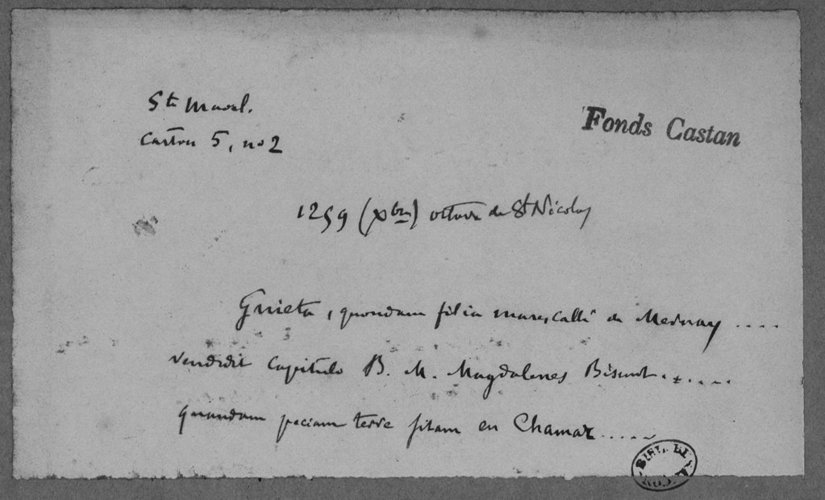 Ste Madel.
Carton 5, no 2
Fonds Castan
1259 (Xbre) octave de St Nicolas
Guieta, quondam filia marescalli de Mernay ....
vendidit capitulo B. M. Magdalenes Bisunt.......
quandam peciam terre sitam en Chamar .....